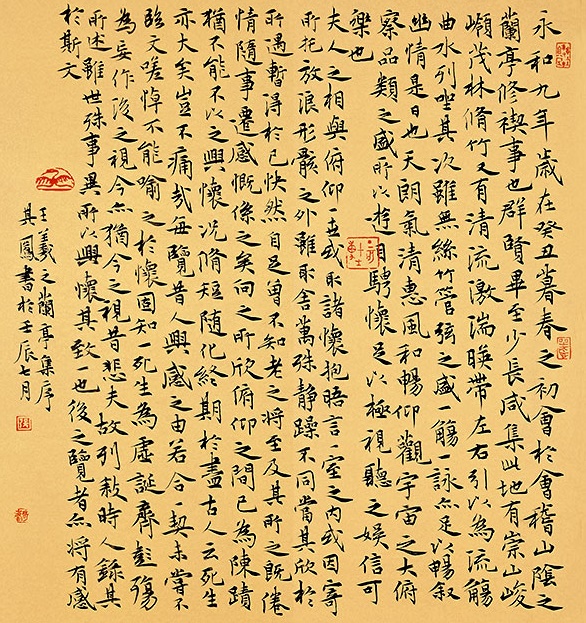 永和九年歲在癸丑暮春之初會於會稽山陰之
蘭亭修禊事也群賢畢至少長咸集此地有崇山峻
嶺茂林脩竹又有清流激湍暎帶左右引以為流觴
曲水列坐其次雖無絲竹管弦之盛一觴一詠亦足以暢敘
幽情是日也天朗氣清惠風和暢仰觀宇宙之大俯
察品類之盛所以遊目騁懷足以極視聽之娛信可
樂也
夫人之相與俯仰一世或取諸懷抱晤言一室之內或因寄
所托放浪形骸之外雖取舍萬殊靜躁不同當其欣於
所遇暫得於己快然自足曾不知老之將至及其所之既倦
情隨事遷感慨係之矣向之所欣俯仰之間已為陳蹟
猶不能不以之興懷況脩短隨化終期於盡古人云死生
亦大矣豈不痛哉每覽昔人興感之由若合一契未嘗不
臨文嗟悼不能喻之於懷固知一死生為虛誕齊彭殤
為妄作後之視今亦猶今之視昔悲夫故列敘時人錄其
所述雖世殊事異所以興懷其致一也後之覽者亦將有感
於斯文
王羲之蘭亭集序
其鳳書於壬辰七月